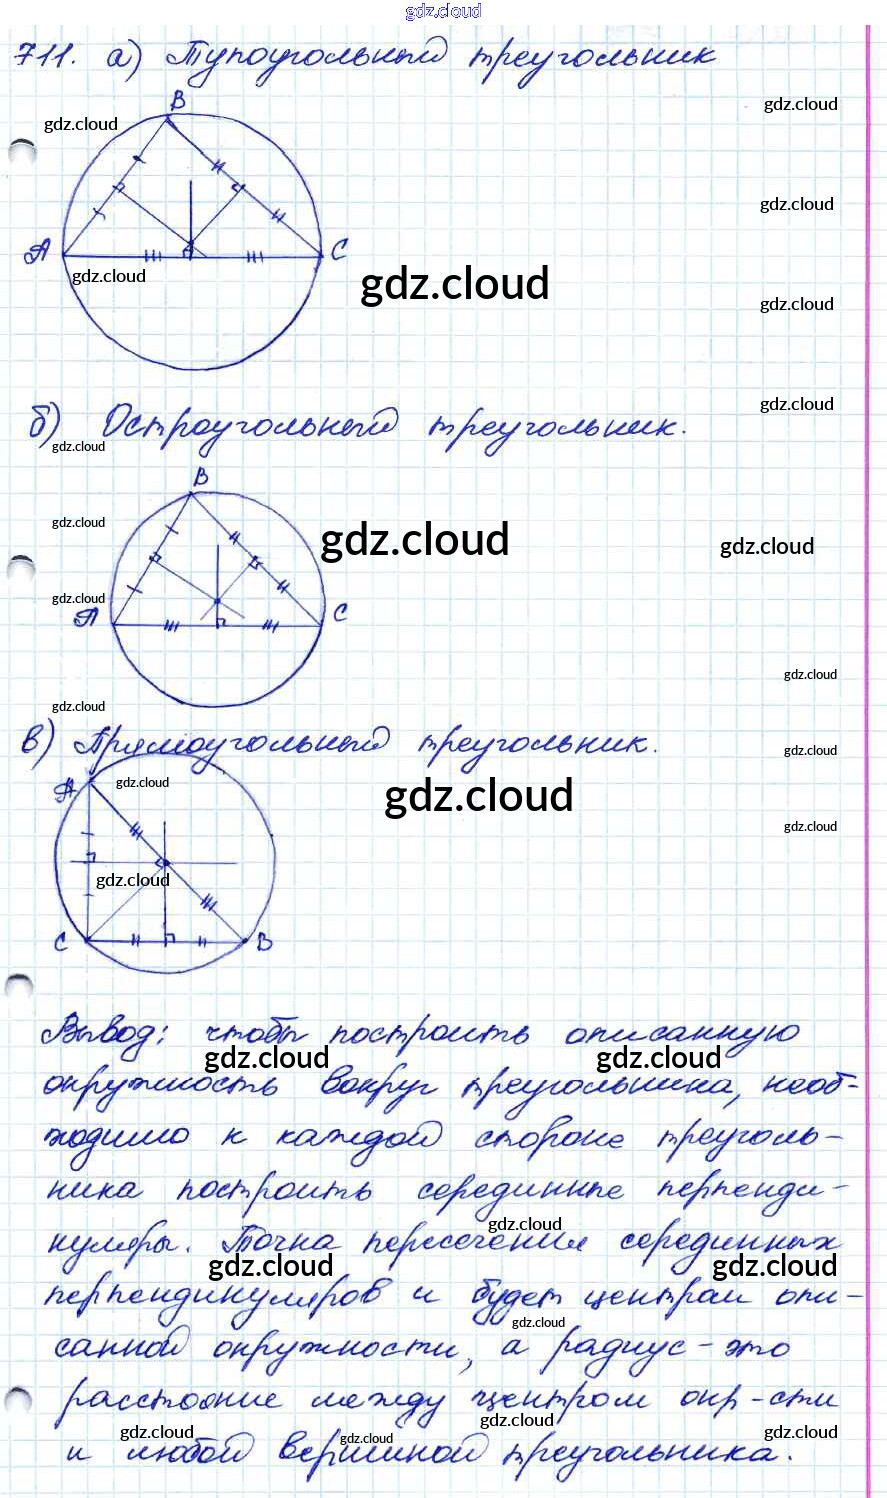 gdz.cloud
711. а) Тупоугольный треугольник
B
gdz.cloud
gdz.cloud
gdz.cloud
A
C
gdz.cloud
gdz.cloud
gdz.cloud
gdz.cloud
б) Остроугольный треугольник.
gdz.cloud
B
gdz.cloud
gdz.cloud
gdz.cloud
gdz.cloud
A
C
gdz.cloud
gdz.cloud
в) Прямоугольный треугольник.
gdz.cloud
A
gdz.cloud
gdz.cloud
gdz.cloud
gdz.cloud
C
B
Вывод: чтобы построить описанную
gdz.cloud
gdz.cloud
окружность вокруг треугольника, необ-
ходимо к каждой стороне треуголь-
ника построить серединные перпенди-
gdz.cloud
куляры. Точка пересечения серединных
gdz.cloud
gdz.cloud
перпендикуляров и будет центром опи-
gdz.cloud
санной окружности, а радиус - это
расстояние между центром окр-сти
gdz.cloud
gdz.cloud
gdz.cloud
gdz.cloud
и любой вершиной треугольника.